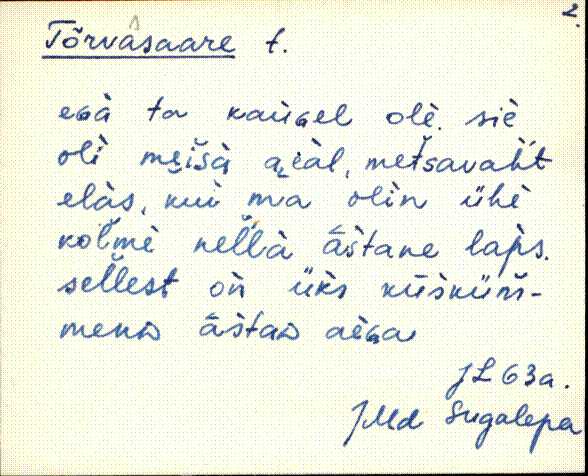 2.
Tõrvasaare t.
eɢà ta kauɢel olè. siè
oli mẹišà aeàl, metsavaht
elàs, kui ma olin ühè
kolmè nellà āštane laps.
sellest on üks küsküm-
menD āštaD aèɢa
JL 63 a.
JMd Sugalepa